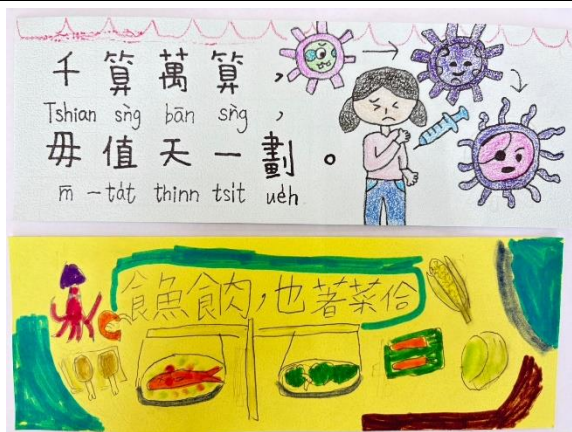 千算萬算，
Tshian sǹg bān sǹg,
毋值天一劃。
m̄-ta̍t thinn tsi̍t ue̍h
食魚食肉，也著菜佮